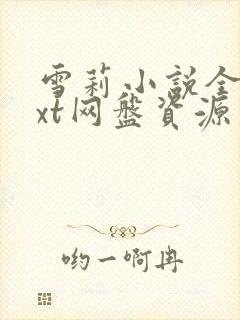 雪莉小説全
xt网盤資源
哟一啊冉